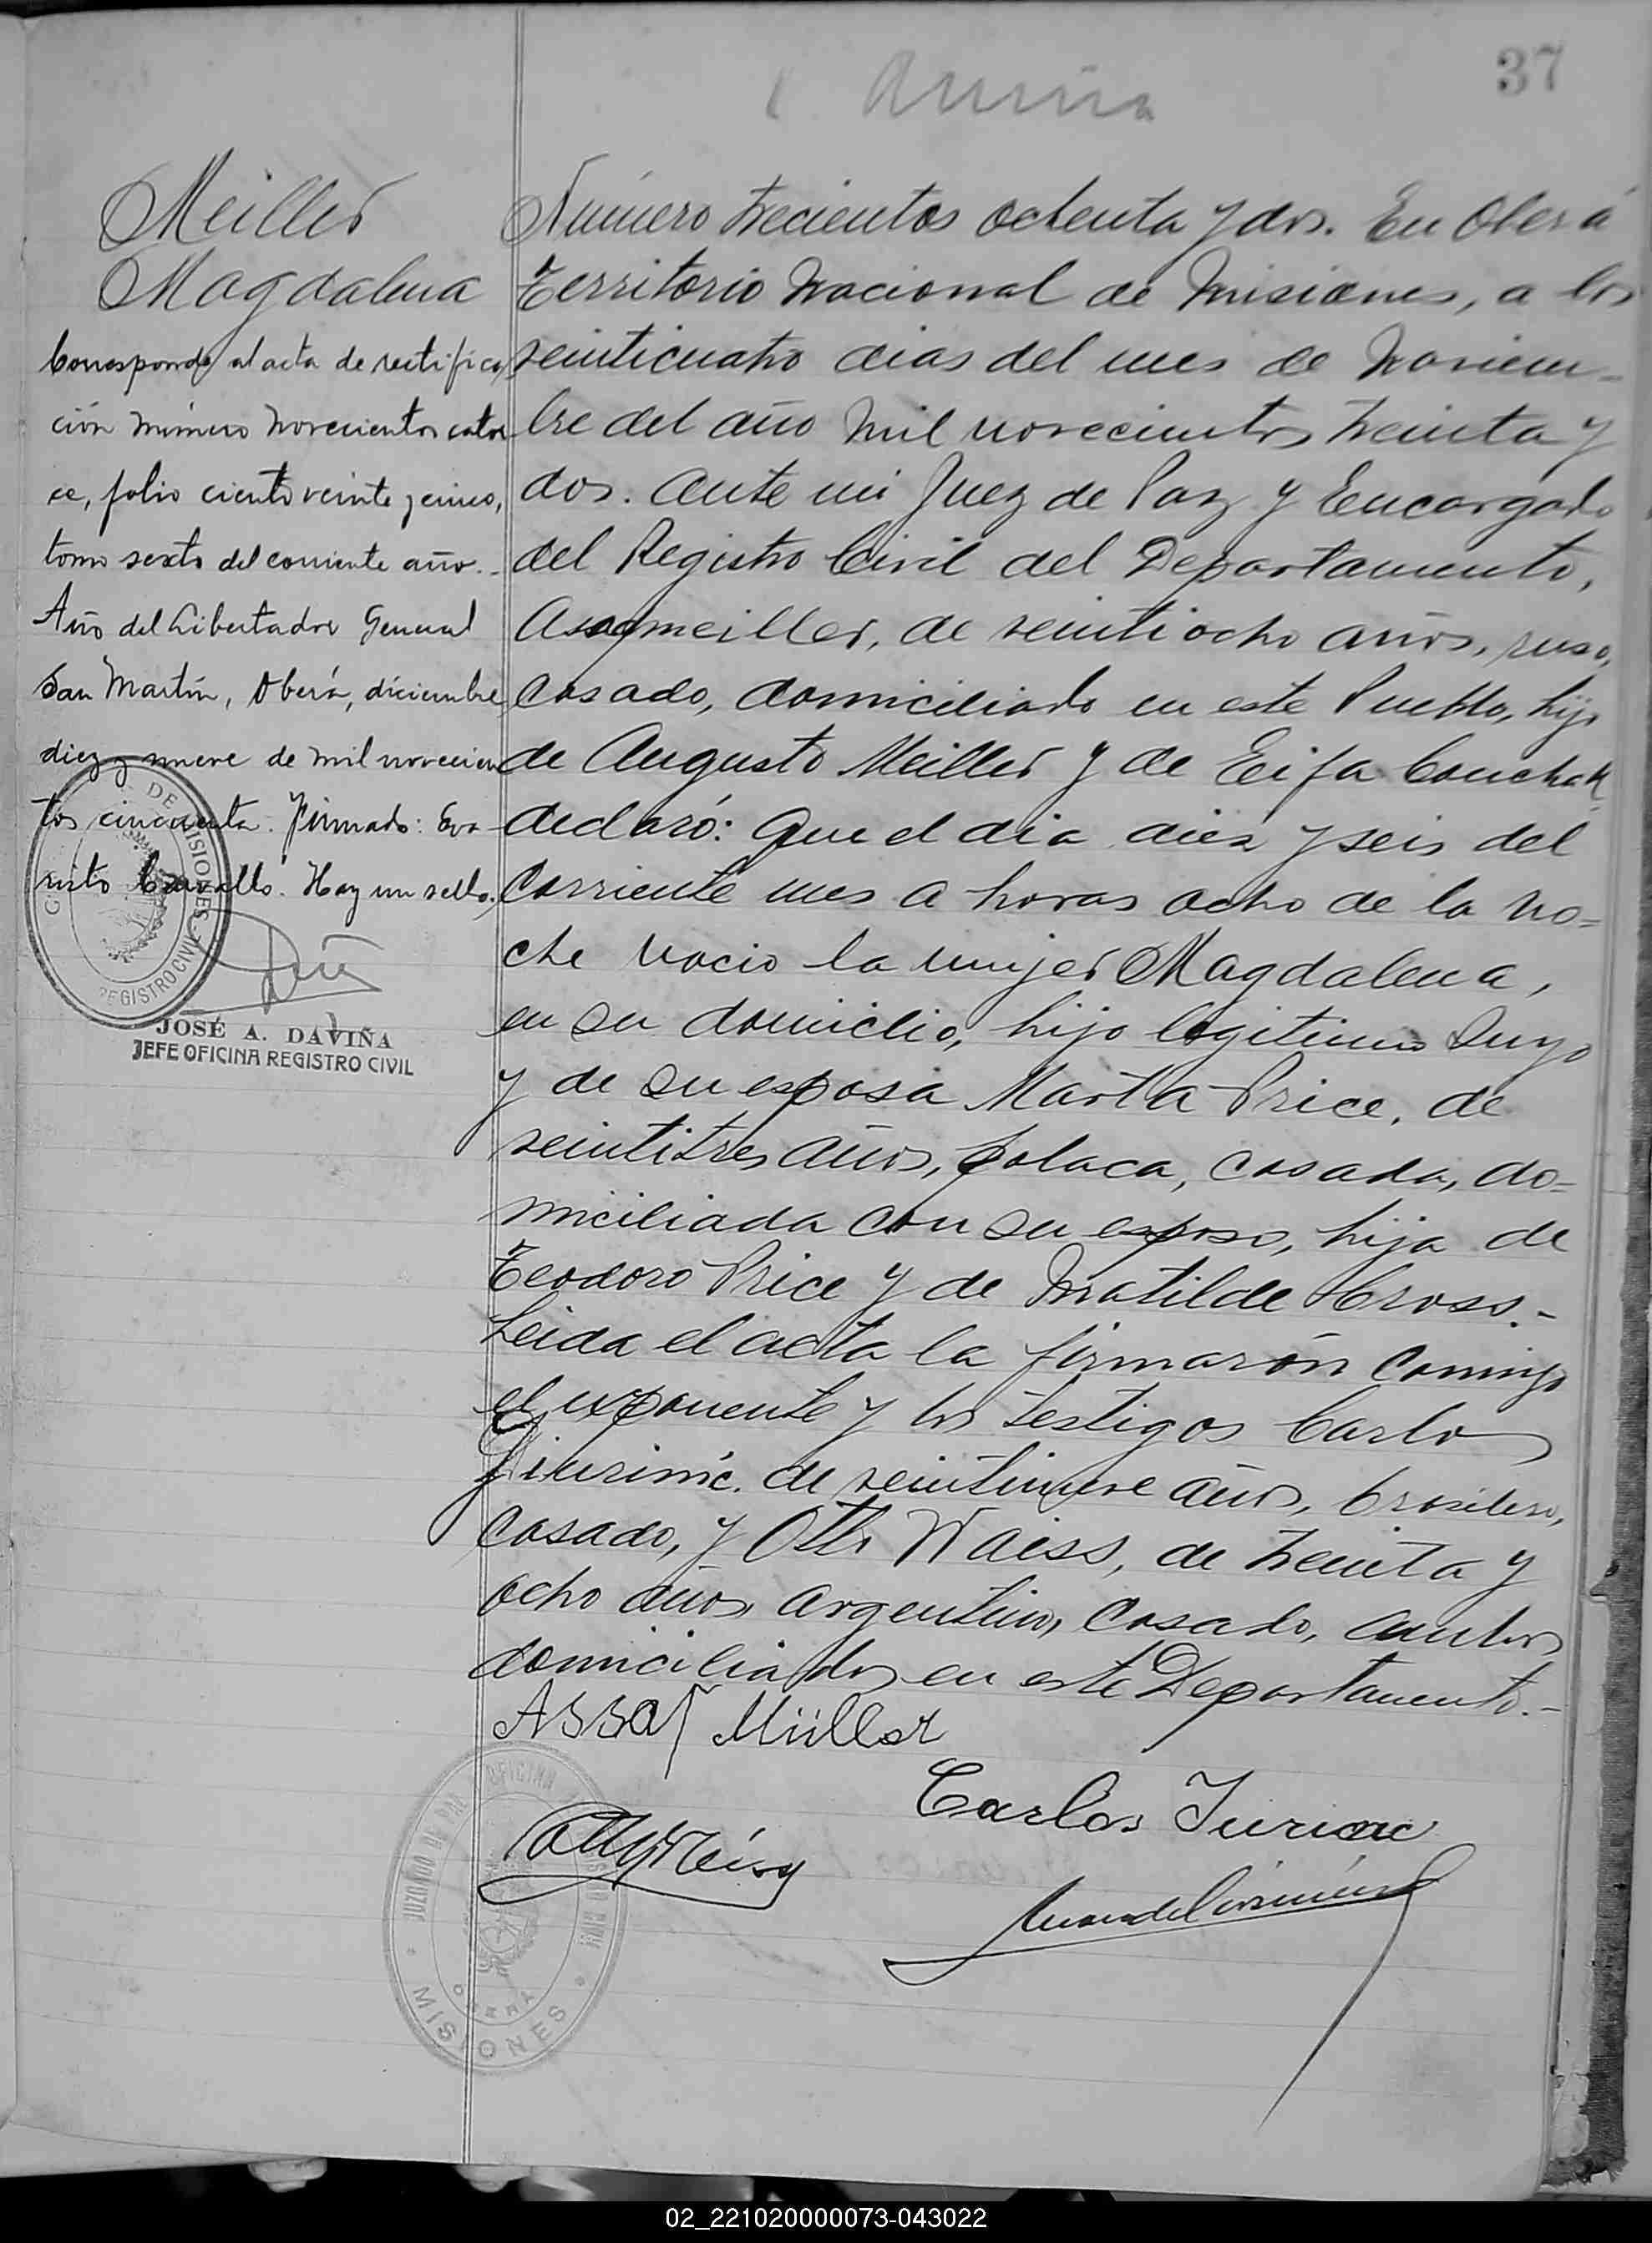 37
Meiller
Magdalena
Corresponde al acta de rectifica
ción número novecientos cator
ce, folio ciento veinte y cinco,
tomo sexto del corriente año.-
Año del Libertador General
San Martín, Oberá, diciembre
diez y nueve de mil novecien
tos cincuenta. Firmado: Eva
risto Carvallo. Hay un sello.
DE MISIONES
REGISTRO CIVIL
JOSÉ A. DAVIÑA
JEFE OFICINA REGISTRO CIVIL
Número trecientos ochenta y dos. En Oberá
Territorio Nacional de Misiones, a los
veinticuatro dias del mes de Noviem-
bre del año mil novecientos treinta y
dos. Ante mi Juez de Paz y Encargado
del Registro Civil del Departamento,
Meiller, de veintiocho años, ruso,
casado, domiciliado en este Pueblo, hijo
de Augusto Meiller y de
declaró: Que el dia diez y seis del
corriente mes a horas ocho de la no=
che nacio la mujer Magdalena,
en su domicilio, hijo legitimo suyo
y de su esposa Marta Price, de
veintitres años, polaca, casada, do=
miciliada con su esposo, hija de
Teodoro Price y de Matilde Cross.-
Leida el acta la firmarón comigo
el exponente y los testigos Carlos
de veintinueve años, brasilero,
casado, y Otto Waiss, de treinta y
ocho años, argentino, casado, ambos
domiciliados en este Departamento.-
Assaf Müller
Carlos
JUZGADO DE PAZ
OFICINA
REGISTRO CIVIL
OBERÁ
MISIONES
02_221020000073-043022